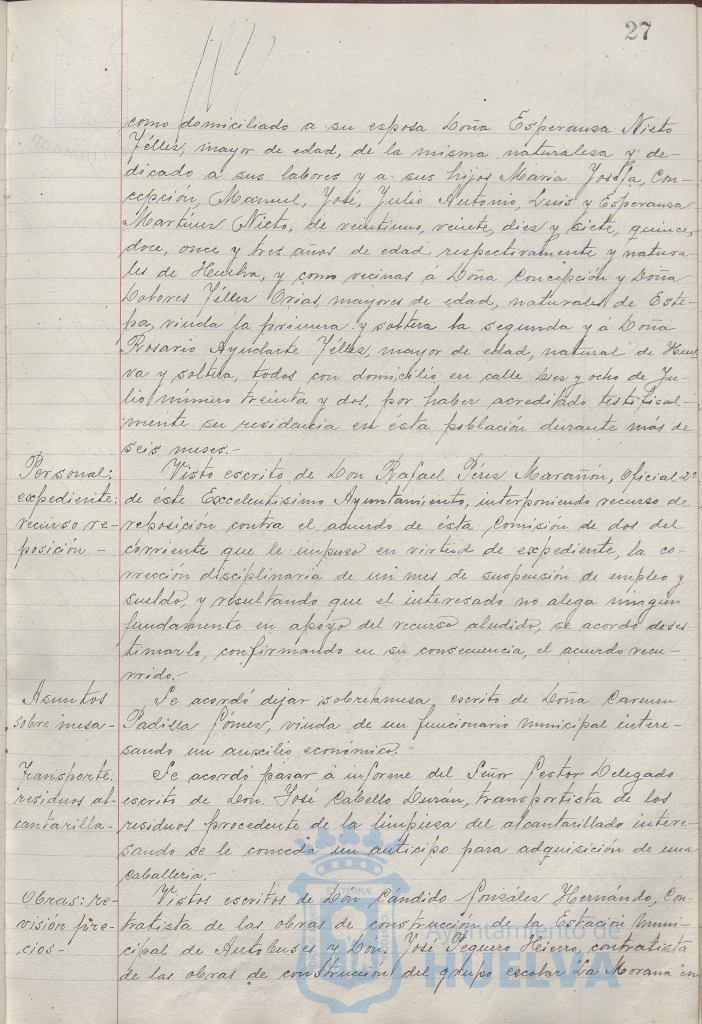 27
como domiciliado a su esposa Doña Esperanza Nieto
Téllez, mayor de edad, de la misma naturaleza y de-
dicado a sus labores y a sus hijos María Josefa, Con-
cepción, Manuel, José, Julio Antonio, Luis y Esperanza
Martínez Nieto, de veintiuno, veinte, diez y siete, quince,
doce, once y tres años de edad respectivamente y natura-
les de Huelva, y como vecinas á Doña Concepción y Doña
Dolores Téllez Orias, mayores de edad, naturales de Este-
pa, viuda la primera y soltera la segunda y á Doña
Rosario Ayudarte Téllez, mayor de edad, natural de Huel-
va y soltera, todos con domicilio en calle Diez y ocho de Ju-
lio número treinta y dos, por haber acreditado testifical-
mente su residencia en ésta población durante más de
seis meses.-
Personal:
expediente:
recurso re-
posición -
Visto escrito de Don Rafael Pérez Marañón, Oficial 2º
de éste Excelentísimo Ayuntamiento, interponiendo recurso de
reposición contra el acuerdo de ésta Comisión de dos del
corriente que le impuso en virtud de expediente, la co-
rrección disciplinaria de un mes de suspensión de empleo y
sueldo, y resultando que el interesado no alega ningún
fundamento en apoyo del recurso aludido, se acordó deses-
timarlo, confirmando en su consecuencia, el acuerdo recu-
rrido.-
Asuntos
sobre mesa-
Se acordó dejar sobre la mesa, escrito de Doña Carmen
Padilla Gómez, viuda de un funcionario municipal intere-
sando un auxilio económico.-
Transporte:
residuos al-
cantarilla-
Se acordó pasar a informe del Señor Gestor Delegado
escrito de Don José Cabello Durán, transportista de los
residuos procedente de la limpieza del alcantarillado intere-
sando se le conceda un anticipo para adquisición de una
caballería.-
Obras: re-
visión pre-
cios-
Vistos escritos de Don Cándido González Hernándo, Con-
tratista de las obras de construcción de la Estación Muni-
cipal de Autobuses y Don José Peguero Hierro, contratista
de las obras de construcción del grupo escolar La Morana en
Ayuntamiento de
HUELVA